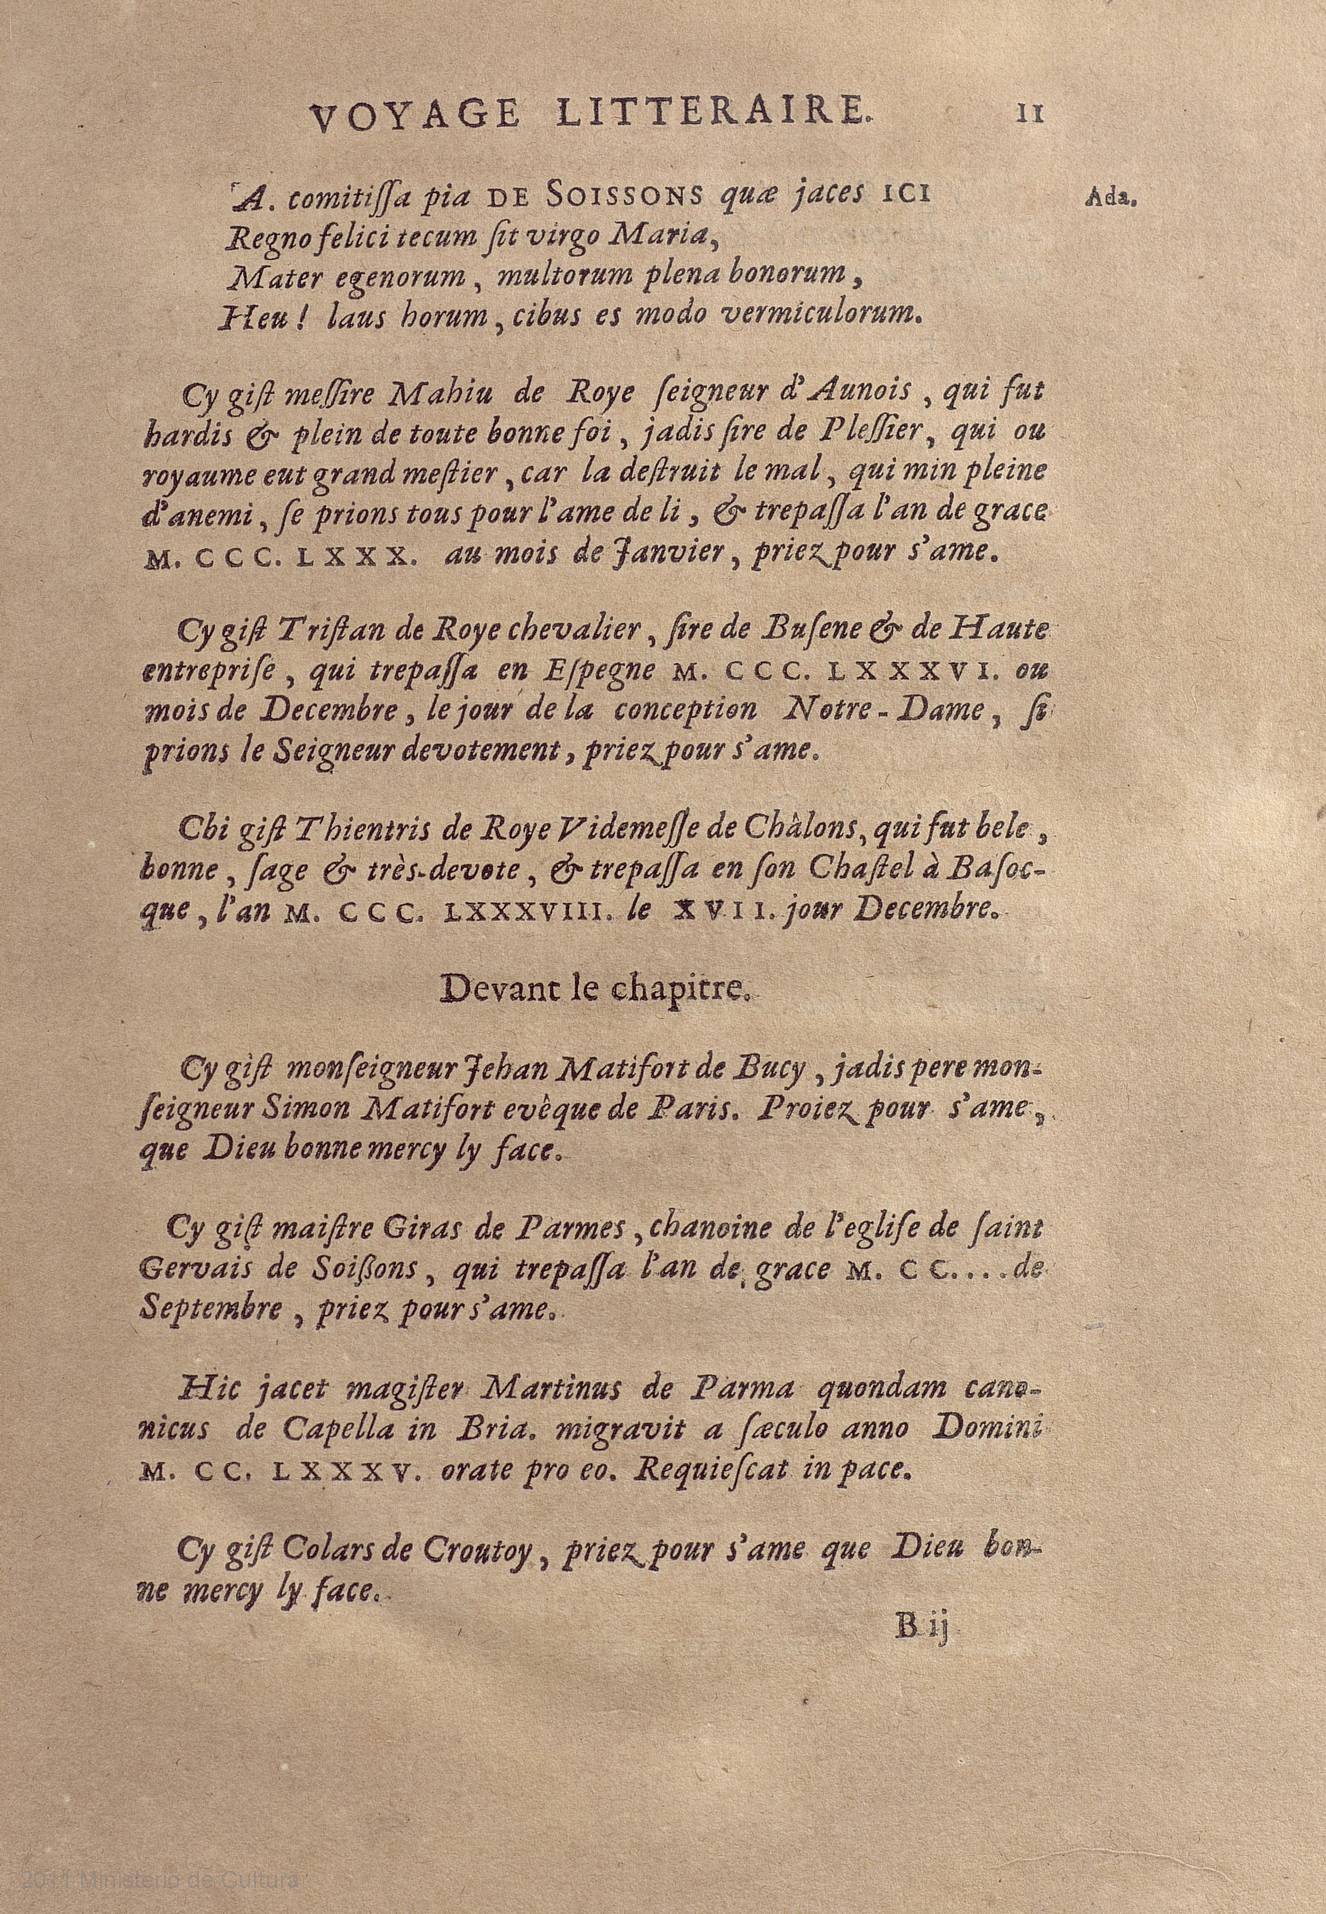 VOYAGE LITTERAIRE. 11
A. comitiſſa pia DE SOISSONS quæ jaces ICI Ada.
Regno felici tecum ſit virgo Maria,
Mater egenorum, multorum plena bonorum,
Heu! laus horum, cibus es modo vermiculorum.
Cy giſt meſſire Mahiu de Roye ſeigneur d'Aunois, qui fut
hardis & plein de toute bonne foi, jadis ſire de Pleſſier, qui ou
royaume eut grand meſtier, car la deſtruit le mal, qui min pleine
d'anemi, ſe prions tous pour l'ame de li, & trepaſſa l'an de grace
M. CCC. LXXX. au mois de Janvier, priez pour s'ame.
Cy giſt Triſtan de Roye chevalier, ſire de Buſene & de Haute
entrepriſe, qui trepaſſa en Eſpegne M. CCC. LXXXVI. ou
mois de Decembre, le jour de la conception Notre-Dame, ſi
prions le Seigneur devotement, priez pour s'ame.
Chi giſt Thientris de Roye Videmeſſe de Châlons, qui fut bele,
bonne, ſage & très-devote, & trepaſſa en ſon Chaſtel à Baſoc-
que, l'an M. CCC. LXXXVIII. le XVII. jour Decembre.
Devant le chapitre.
Cy giſt monſeigneur Jehan Matifort de Bucy, jadis pere mon-
ſeigneur Simon Matifort evêque de Paris. Proiez pour s'ame,
que Dieu bonne mercy ly face.
Cy giſt maiſtre Giras de Parmes, chanoine de l'egliſe de ſaint
Gervais de Soißons, qui trepaſſa l'an de grace M. CC.... de
Septembre, priez pour s'ame.
Hic jacet magiſter Martinus de Parma quondam cano-
nicus de Capella in Bria. migravit a ſæculo anno Domini
M. CC. LXXXV. orate pro eo. Requieſcat in pace.
Cy giſt Colars de Croutoy, priez pour s'ame que Dieu bon-
ne mercy ly face.
B ij
2011 Ministerio de Cultura